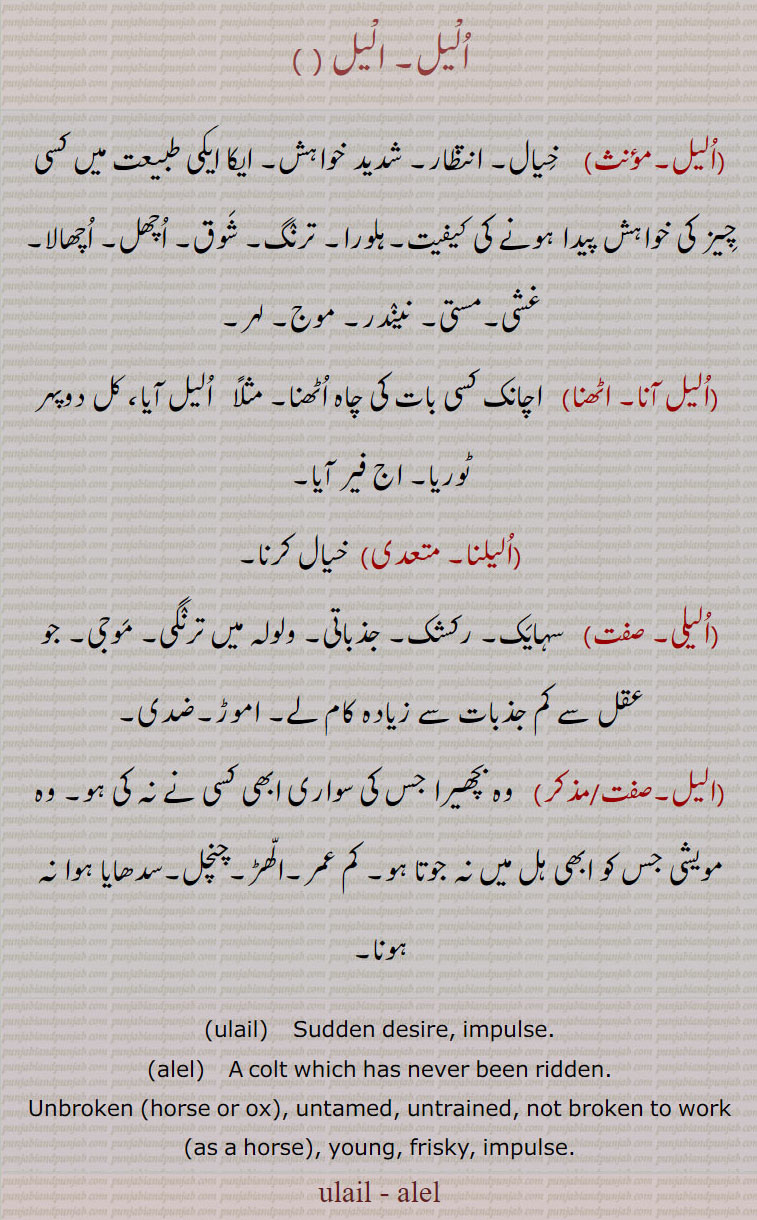 اُلْیل۔ الْیل ( )
(اُلیل۔مؤنث) خِیال۔ انتظار۔ شدید خواہش۔ ایکا ایکی طبیعت میں کسی
چِیز کی خواہش پیدا ہونے کی کیفیت۔ہلورا۔ ترنگ۔ شَوق۔ اُچھل۔ اُچھالا۔
غشی۔مستی۔ نیندر۔ موج۔ لہر۔
(اُلیل آنا۔ اٹھنا) اچانک کسی بات کی چاہ اُٹھنا۔ مثلاً اُلیل آیا، کل دوپہر
ٹوریا۔ اج فیر آیا۔
(اُلیلنا۔ متعدی) خیال کرنا۔
(اُلیلی۔ صفت) سہایَک۔ رکشک۔ جذباتی۔ ولولہ میں ترنگی۔ مَوجی۔ جو
عقل سے کم جذبات سے زیادہ کام لے۔ اموڑ۔ضدی۔
(الیل۔صفت/مذکر) وہ بچھیرا جس کی سواری ابھی کسی نے نہ کی ہو۔ وہ
مویشی جس کو ابھی ہل میں نہ جوتا ہو۔ کم عمر۔الّھڑ۔چنچل۔سدھایا ہوا نہ
ہونا۔
(ulail) Sudden desire, impulse.
(alel) A colt which has never been ridden.
Unbroken (horse or ox), untamed, untrained, not broken to work
(as a horse), young, frisky, impulse.
ulail - alel